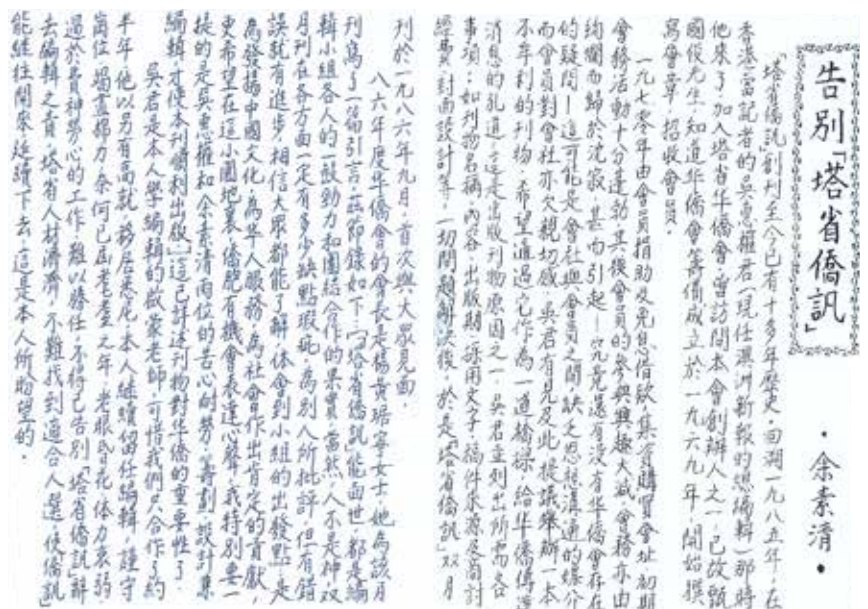 告别「塔省僑訊」
·余素清·
「塔省僑訊」創刊至今已有十多年歷史，回溯一九八五年，在
香港當記者的吳惠權君（現任澳洲新報的總編輯）那時
他來了，加入塔省华僑會，曾訪問本會創辦人之一，已故甄
國俊先生，知道华僑會籌備成立於一九六九年，開始撰
寫會章，招收會員．
一九七零年由會員捐助及免息借款，集資購買會址，初期
會務活動十分蓬勃，其後會員的參與興趣大減，會務亦由
絢爛而歸於沈寂，甚而引起—究竟還有沒有华僑會存在
的疑問—這可能是會社與會員之間缺乏思想溝通的媒介
而會員對會社亦欠親切感，吳君有見及此，提議舉辦一本
不牟利的刊物，希望通過它作為一道橋樑，給华僑傳遞
消息的孔道，這是出版刊物原因之一．吳君並列出所需各
事項：如刊物名稱，內容，出版期，採用文字，稿件來源及商討
經費，封面設計等，一切問題解決後，於是「塔省僑訊」双月
刊於一九八六年九月，首次與大眾見面．
八六年度华僑會的會長是楊黃琚寧女士，她為該月
刊寫了一篇引言，茲節錄如下「『塔省僑訊』能面世，都是編
輯小組各人的一股勁力和團結合作的果實，當然，人不是神，双
月刊在各方面一定有多少缺點瑕疵，為別人所批評，但有錯
誤就有進步，相信大眾都能了解，体會到小組的出發點，是
為發揚中國文化，為华人服務，為社會作出肯定的貢獻，
更希望在這小園地裏，僑胞有機會表達心聲，我特別要一
提的是吳惠權和余素清兩位的苦心耐勞，籌劃，設計，集
編輯才使本刊順利出版」這已詳述刊物對华僑的重要性了．
吳君是本人學編輯的啟蒙老師，可惜我們只合作了約
半年，他以另有高就，移居悉尼，本人繼續留任編輯，謹守
崗位，竭盡綿力，奈何已屆耄耋之年，老眼昏花，体力衰弱，
過於費神勞心的工作，難以勝任，不得已告别「塔省僑訊」辭
去編輯之責，塔省人材濟濟，不難找到適合人選，使僑訊
能継往開來，延續下去，這是本人所盼望的．